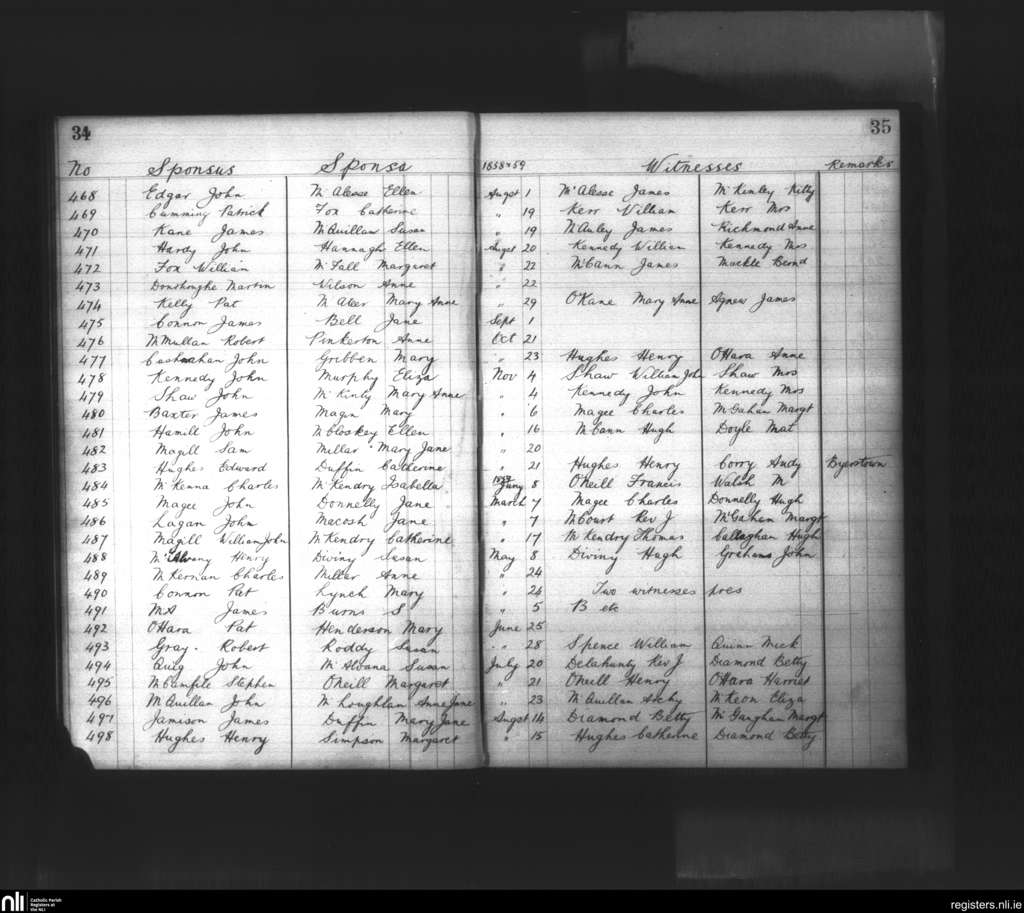 34 35
No Sponsus Sponsa 1858+59 Witnesses Remarks
468 Edgar John McAleese Ellen Augst 1 McAleese James McKinley Kitty
469 Cumming Patrick Fox Catherine " 19 Kerr William Kerr Mrs
470 Kane James McQuillan Susan " 19 McAuley James Richmond Anne
471 Hardy John Hannagh Ellen Augst 20 Kennedy William Kennedy Mrs
472 Fox William McFall Margaret " 22 McCann James Muckle Bernd
473 Donohoghe Martin Wilson Anne " 22
474 Kelly Pat McAleer Mary Anne " 29 O'Kane Mary Anne Agnew James
475 Connon James Bell Jane Sept 1
476 McMullan Robert Pinkerton Anne Oct 21
477 John Gribben Mary " 23 Hughes Henry O'Hara Anne
478 Kennedy John Murphy Eliza Nov 4 Shaw William John Shaw Mrs
479 Shaw John McKinly Mary Anne " 4 Kennedy John Kennedy Mrs
480 Baxter James Magin Mary " 6 Magee Charles McGahan Margt
481 Hamill John McCloskey Ellen " 16 McCann Hugh Doyle Mat
482 Magill Sam Millar Mary Jane " 20
483 Hughes Edward Duffin Catherine " 21 Hughes Henry Corry Andy Byerstown
484 McKenna Charles McKendry Isabella 1859 Jany 8 O'Neill Francis Walsh M
485 Magee John Donnelly Jane March 7 Magee Charles Donnelly Hugh
486 Lagan John Macosh Jane " 7 McCourt Rev J McGahan Margt
487 Magill William John McKendry Catherine " 17 McKendry Thomas Callaghan Hugh
488 Henry Diviny Susan May 8 Diviny Hugh Grahams John
489 McKernan Charles Millar Anne " 24
490 Connon Pat Lynch Mary " 24 Two witnesses pres
491 McA James Burns S " 5 B etc
492 O'Hara Pat Henderson Mary June 25
493 Gray Robert Roddy Susan " 28 Spence William Quinn Mick
494 Quig John McAloana Susan July 20 Delahunty Rev J Diamond Betty
495 McCamfile Stephen O'Neill Margaret " 21 O'Neill Henry O'Hara Harriet
496 McQuillan John McLoughlan Anne Jane " 23 McQuillan Archy McKeon Eliza
497 Jamison James Duffin Mary Jane Augst 14 Diamond Betty McGaughan Margt
498 Hughes Henry Simpson Margaret " 15 Hughes Catherine Diamond Betty
nli Catholic Parish Registers at the NLI registers.nli.ie